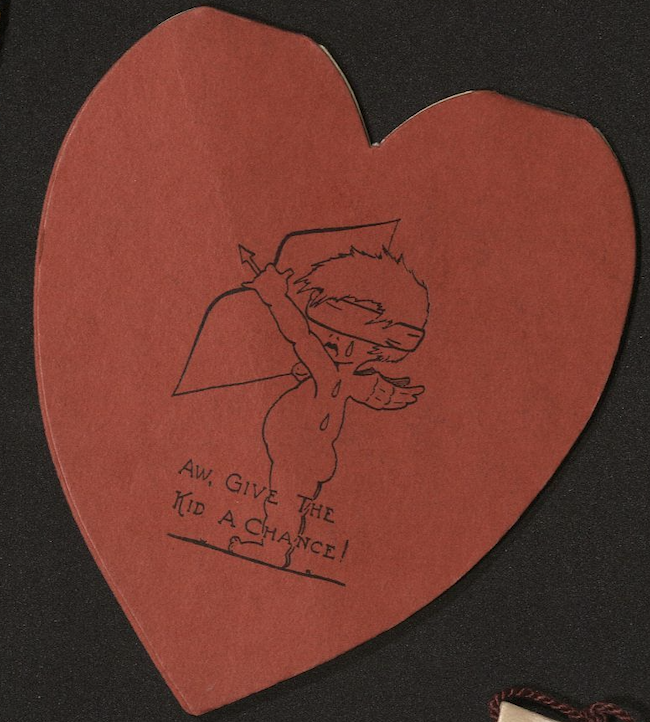 Aw, Give The
Kid A Chance!